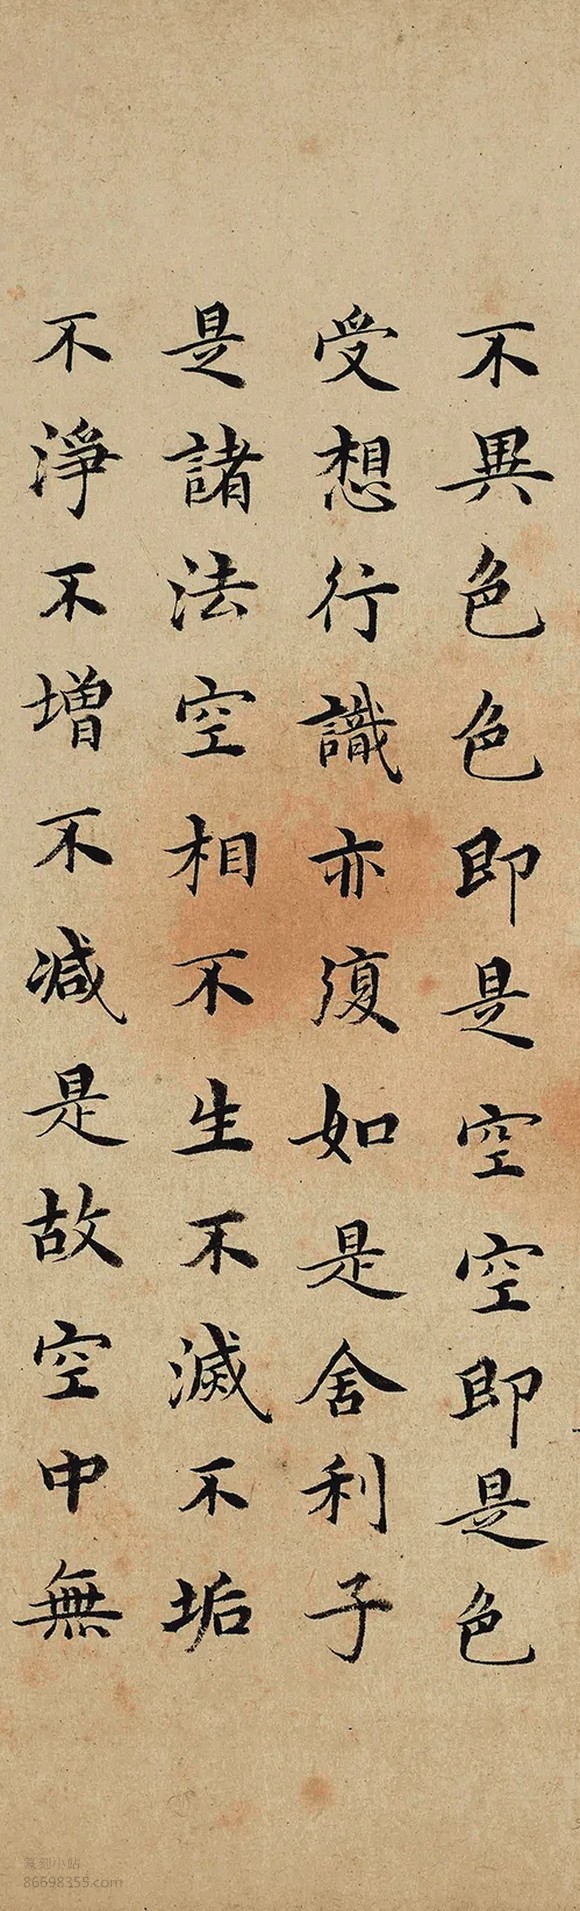 不異色色即是空空即是色
受想行識亦復如是舍利子
是諸法空相不生不滅不垢
不淨不增不減是故空中無
篆刻小站
86698355.com